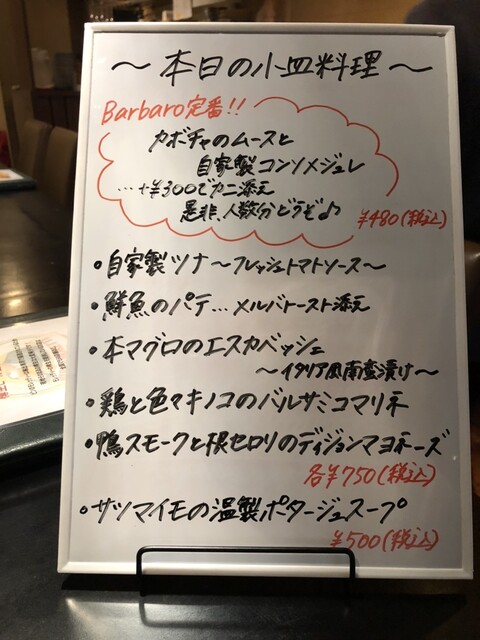 ～本日の小皿料理～
Barbaro定番!!
カボチャのムースと
自家製コンソメジュレ
…+¥300でカニ添え
是非、人数分どうぞ♪
¥480(税込)
・自家製ツナ～フレッシュトマトソース～
・鮮魚のパテ…メルバトースト添え
・本マグロのエスカベッシュ
～イタリア風南蛮漬け～
・鶏と色々キノコのバルサミコマリネ
・鴨スモークと根セロリのディジョンマヨネーズ
各¥750(税込)
・サツマイモの温製ポタージュスープ
¥500(税込)